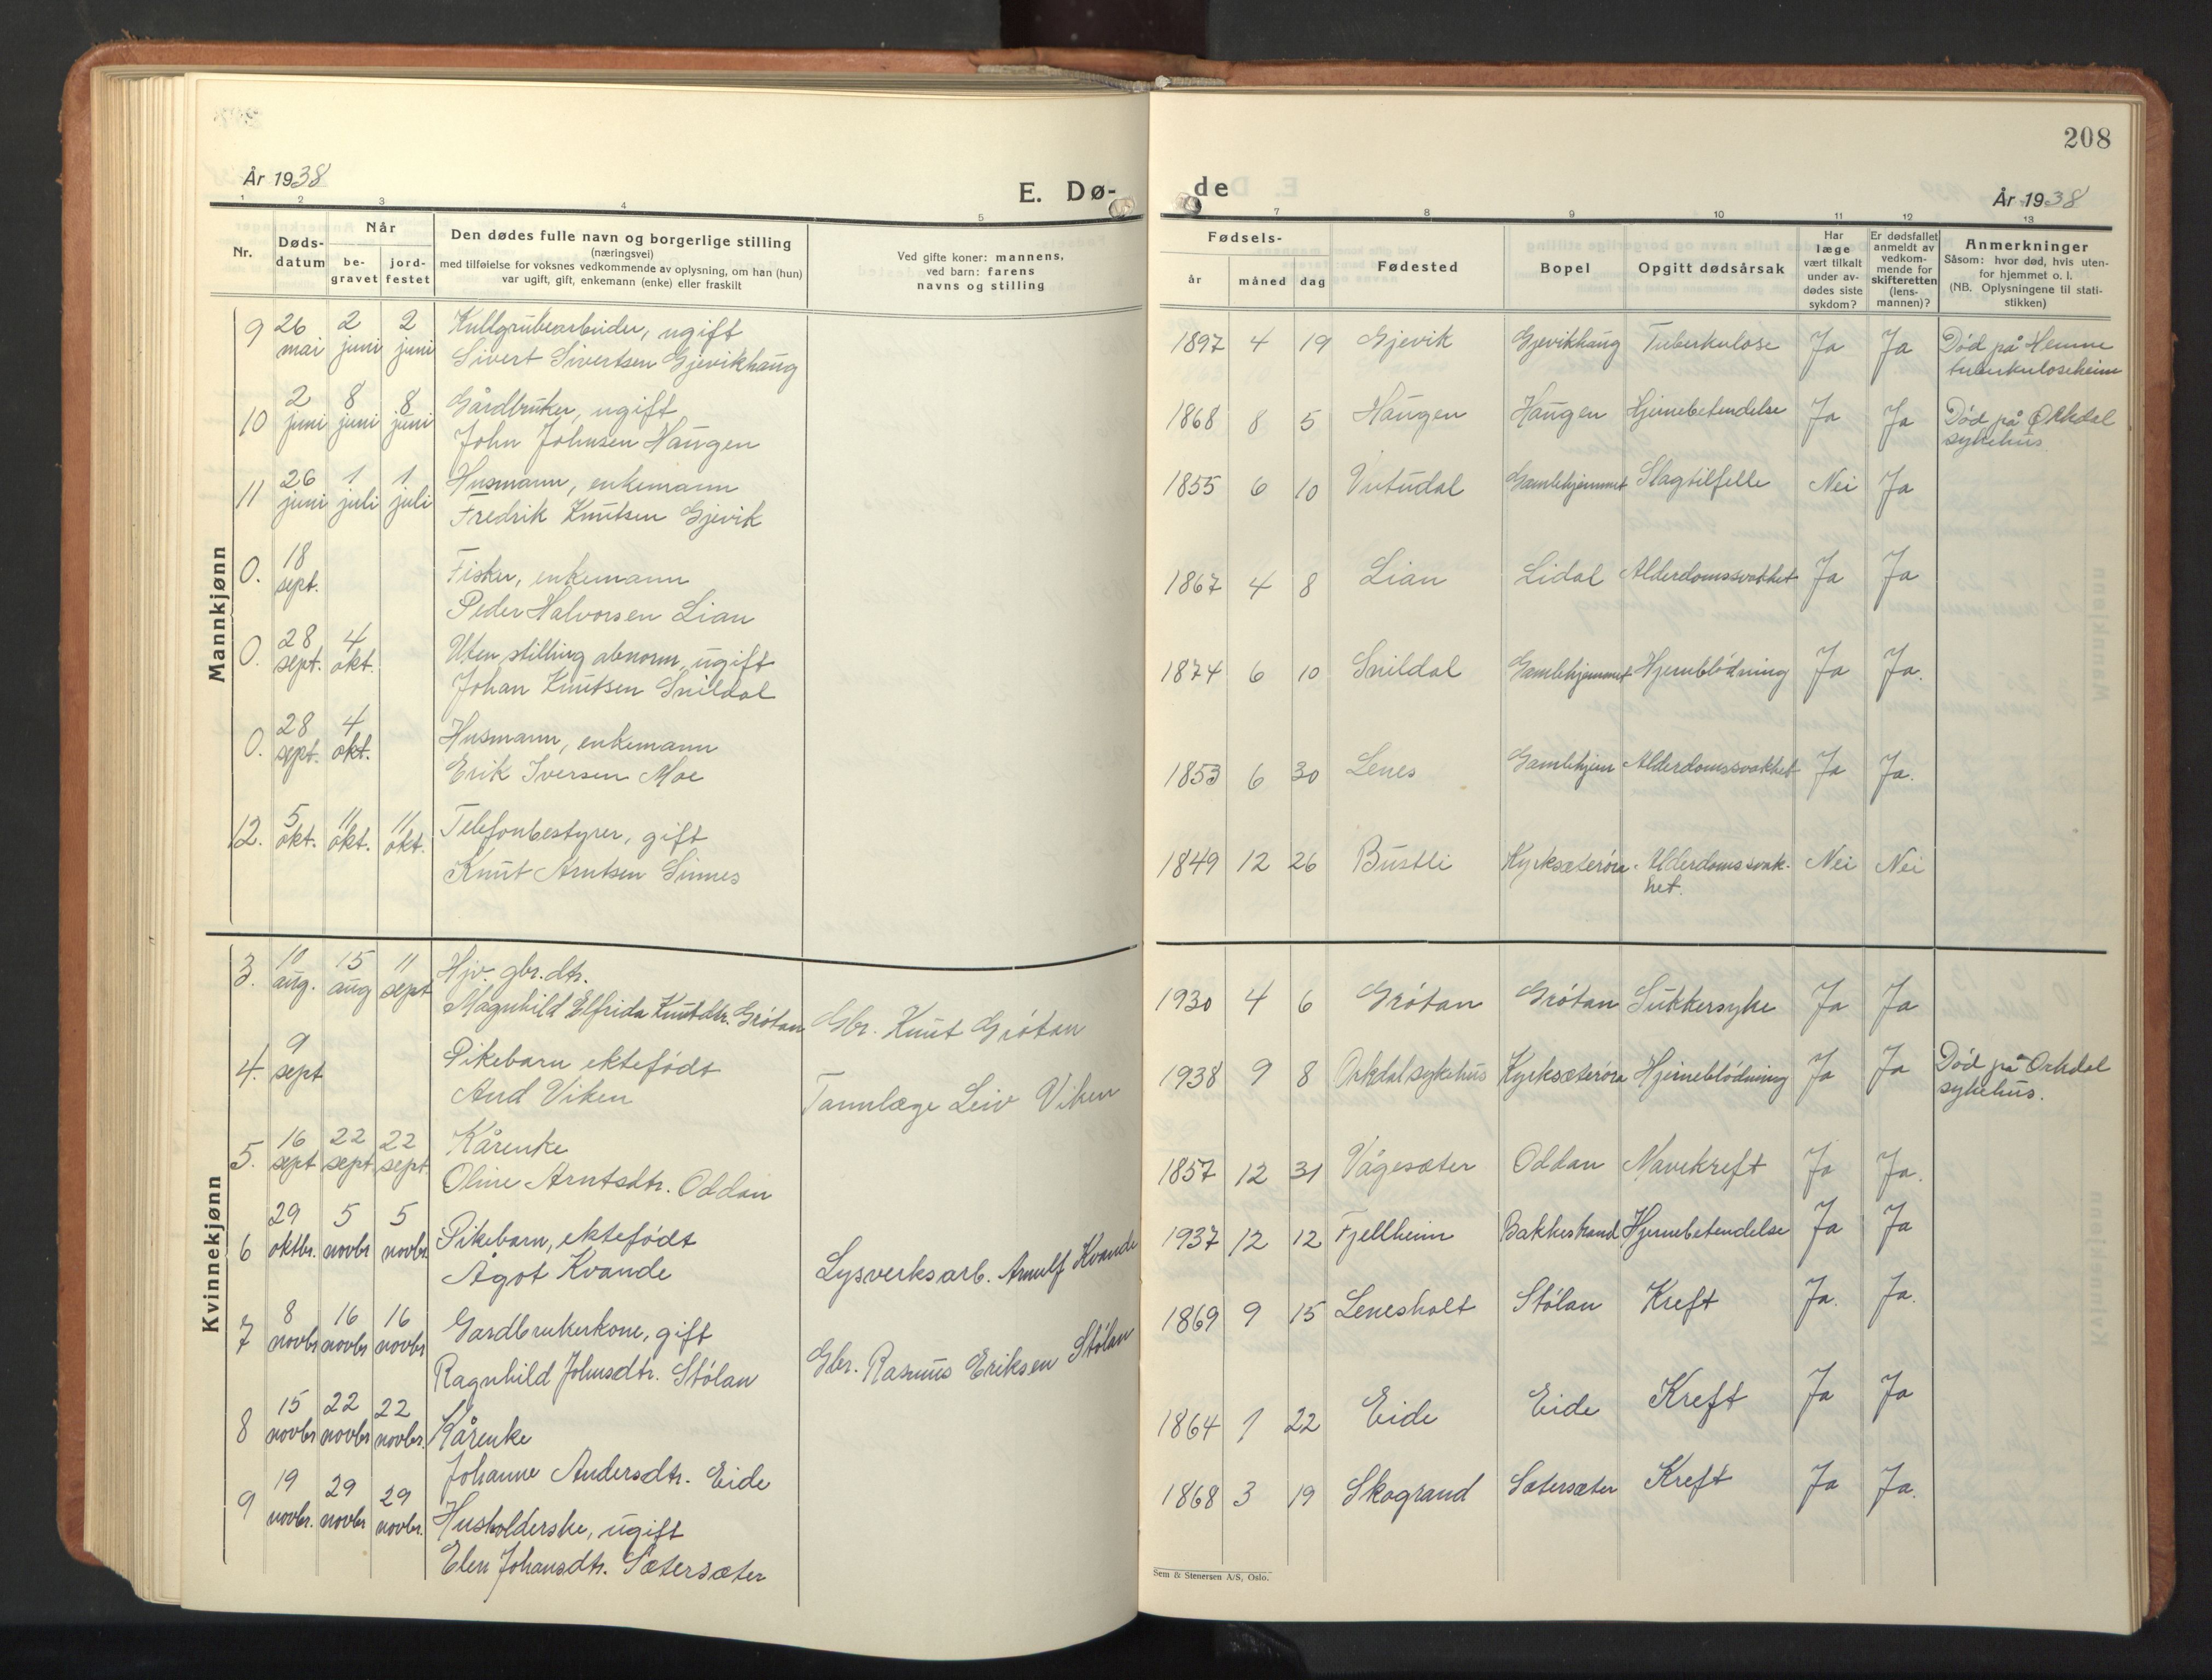 208
År 1938
E. Dø-
de
År 1938
1 2 3 4 5 7 8 9 10 11 12 13
Nr.
Døds-
datum
Når
be-
gravet
jord-
festet
Den dødes fulle navn og borgerlige stilling
(næringsvei)
med tilføielse for voksnes vedkommende av oplysning, om han (hun)
var ugift, gift, enkemann (enke) eller fraskilt
Ved gifte koner: mannens,
ved barn: farens
navns og stilling
Fødsels-
år måned dag
Fødested
Bopel
Opgitt dødsårsak
Har
læge
vært tilkalt
under av-
dødes siste
sykdom?
Er dødsfallet
anmeldt av
vedkom-
mende for
skifteretten
(lens-
mannen)?
Anmerkninger
Såsom: hvor død, hvis uten-
for hjemmet o. l.
(NB. Oplysningene til stati-
stikken)
Mannkjønn
9 26 mai 2 juni 2 juni Kullgrubearbeider, ugift
Sivert Sivertsen Gjevikhaug
1897 4 19 Gjevik Gjevikhaug Tuberkulose Ja Ja Død på Hemne
tuberkuloseheim
10 2 juni 8 juni 8 juni Gårdbruker, ugift
John Johnsen Haugen
1868 8 5 Haugen Haugen Hjernebetendelse Ja Ja Død på Orkdal
sykehus
11 26 juni 1 juli 1 juli Husmann, enkemann
Fredrik Knutsen Gjevik
1855 6 10 Vutudal Gamlehjemmet Slagtilfelle Nei Ja
0. 18 sept. Fisker, enkemann
Peder Halvorsen Lian
1867 4 8 Lian Lidal Alderdomssvakhet Ja Ja
0. 28 sept. 4 okt. Uten stilling abnorm, ugift
Johan Knutsen Snildal
1874 6 10 Snildal Gamlehjemmet Hjerneblødning Ja Ja.
0. 28 sept. 4 okt. Husmann, enkemann
Erik Iversen Moe
1853 6 30 Lenes Gamlehjem Alderdomssvakhet Ja Ja.
12. 5 okt. 11 okt. 11 okt. Telefonbestyrer, gift
Knut Arntsen Sinnes
1849 12 26 Bustli Kyrksæterøra Alderdomssvak-
het. Nei Nei
Kvinnekjønn
3. 10 aug. 15 aug 11 sept Hjv. gbr. dtr.
Magnhild Elfrida Knutdtr. Grøtan Gbr. Knut Grøtan
1930 4 6 Grøtan Grøtan Sukkersyke Ja Ja
4. 9 sept Pikebarn ektefødt
Aud Viken Tannlæge Leiv Viken
1938 9 8 Orkdal sykehus Kyrksæterøra Hjerneblødning Ja Ja Død på Orkdal
sykehus.
5. 16 sept 22 sept 22 sept Kårenke
Oline Arntsdtr. Oddan
1857 12 31 Vågesæter Oddan Mavekreft Ja Ja.
6 29 oktbr. 5 novbr 5 novbr Pikebarn, ektefødt
Ågot Kvande Lysverksarb. Arnulf Kvande
1937 12 12 Fjellheim Bakkestrand Hjernebetendelse Ja Ja
7 8 novbr 16 novbr 16 novbr Gardbrukerkone, gift
Ragnhild Johnsdtr. Stølan Gbr. Rasmus Eriksen Stølan
1869 9 15 Lenesholt Stølan Kreft Ja. Ja.
8 15 novbr 22 novbr 22 novbr. Kårenke
Johanne Andersdtr. Eide
1864 1 22 Eide Eide Kreft Ja Ja
9 19 novbr. 29 novbr 29 novbr. Husholderske, ugift
Elen Johansdtr. Sætersæter
1868 3 19 Skogrand Sætersæter Kreft Ja Ja.
Sem & Stenersen A/S, Oslo.